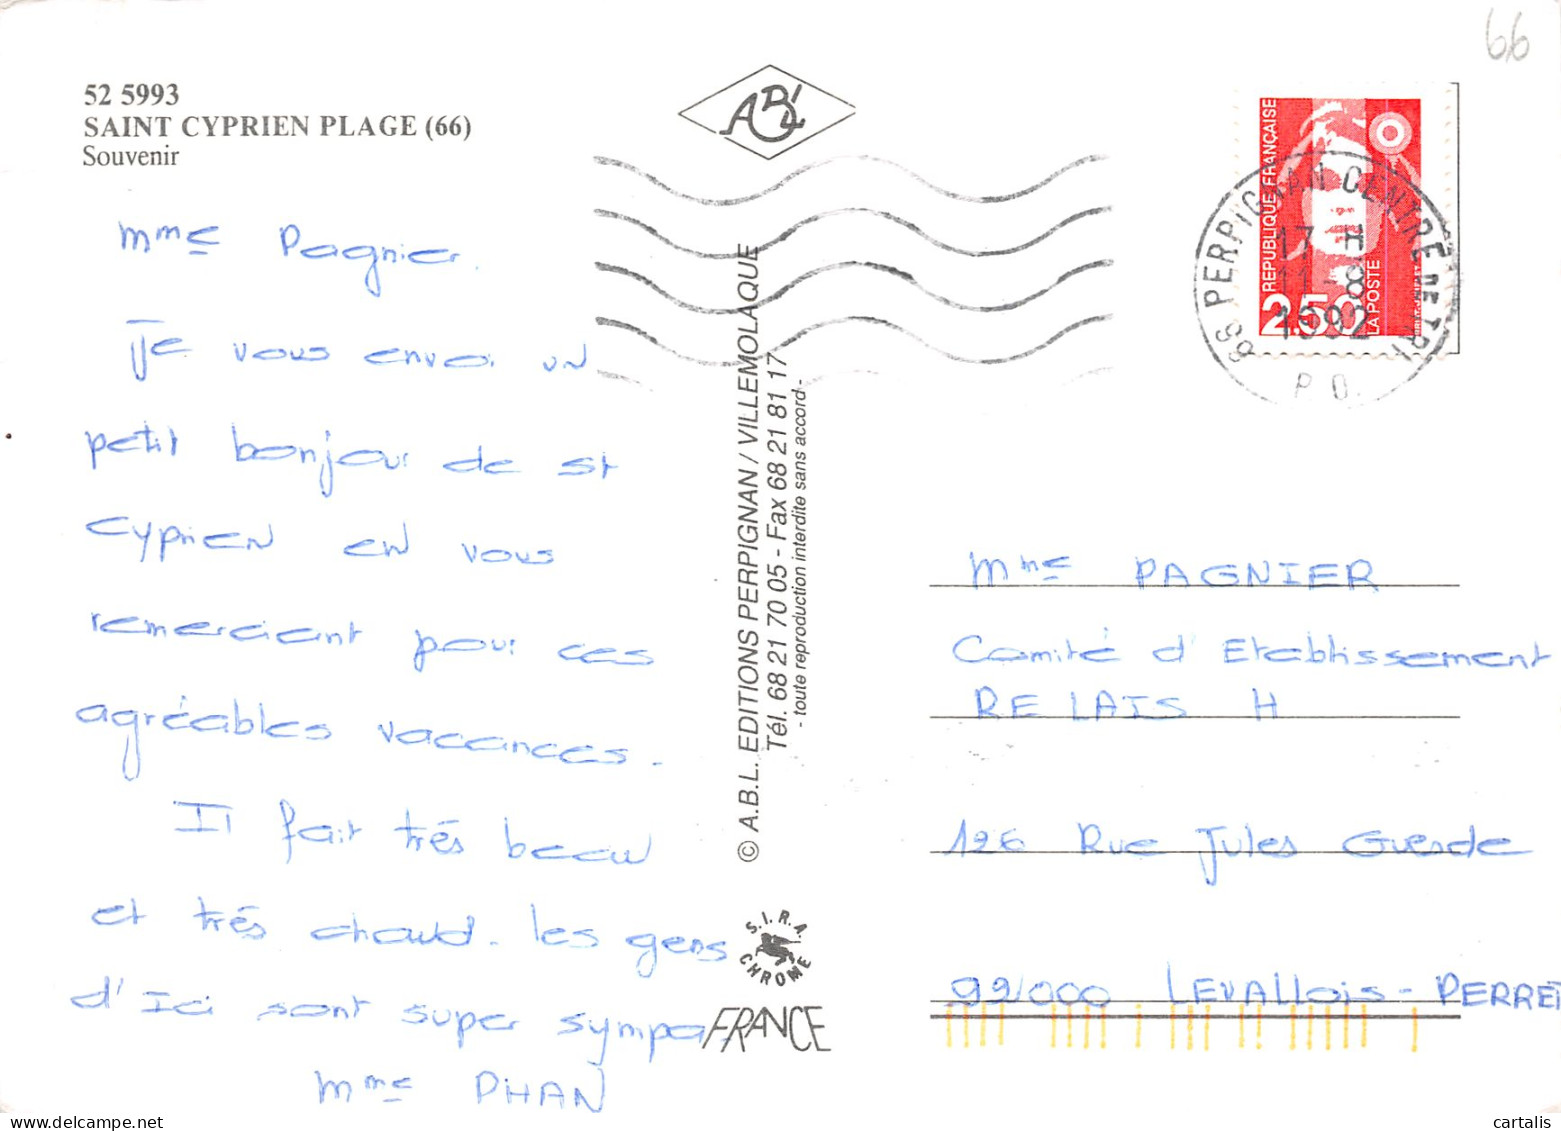 66
52 5993
SAINT CYPRIEN PLAGE (66)
Souvenir
ABL
Mme Pagnier.
Je vous envoi un
petit bonjour de St
Cyprien en vous
remerciant pour ces
agréables vacances.
Il fait trés beau
et trés chaud. les gens
d'Ici sont super sympa.
Mme PHAN
© A.B.L. EDITIONS PERPIGNAN / VILLEMOLAQUE
Tél. 68 21 70 05 - Fax 68 21 81 17
- toute reproduction interdite sans accord -
S.I.R.A.
CHROME
FRANCE
REPUBLIQUE FRANÇAISE
2.50
LA POSTE
66 PERPIGNAN CENTRE DE TRI
17 H
11 - 8
1992
P.O.
Mme PAGNIER
Comité d'Etablissement
RELAIS H
126 Rue Jules Guesde
92/000 LEVALLOIS - PERRET
cartalis